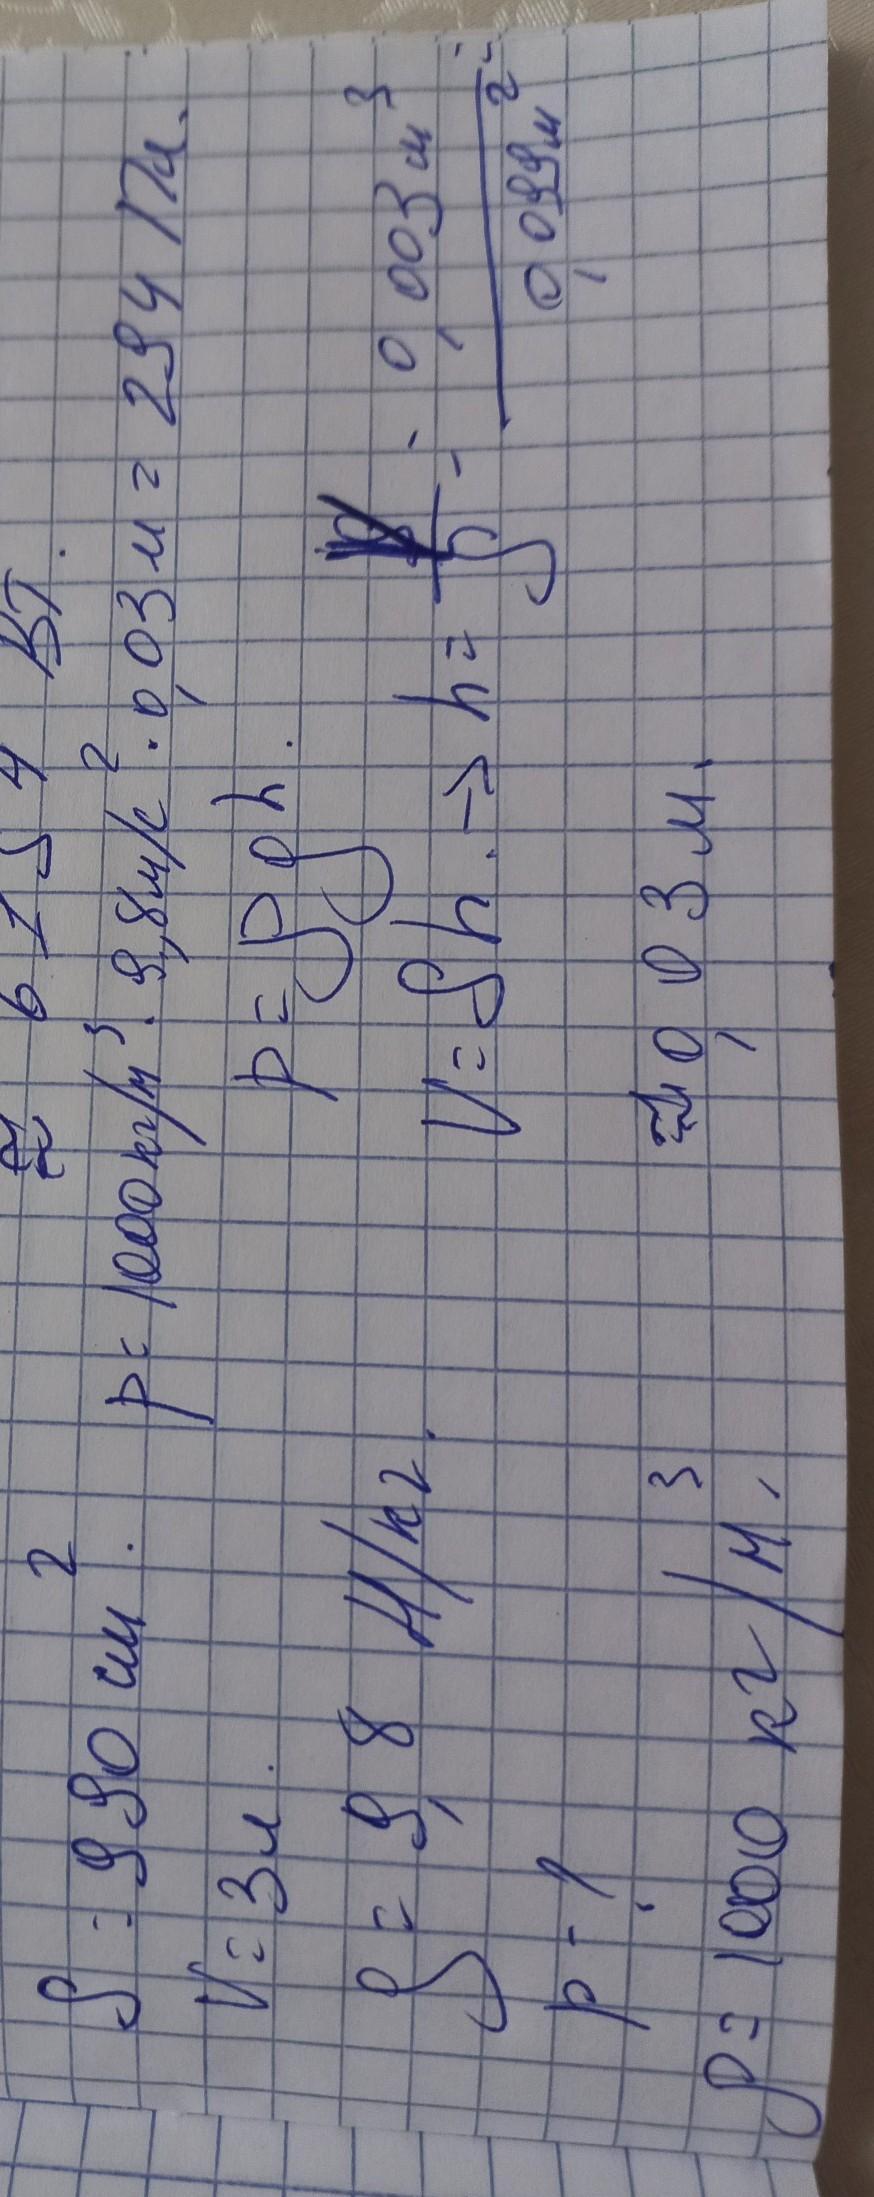 ≈ 6154 Вт.
S = 990 см².
V = 3 л.
g = 9,8 Н/кг.
p - ?
ρ = 1000 кг/м³.
p = 1000 кг/м³ · 9,8 м/с² · 0,03 м = 294 Па.
p = ρgh.
V = Sh. → h = V/S = 0,003 м³ / 0,099 м² =
≈ 0,03 м.